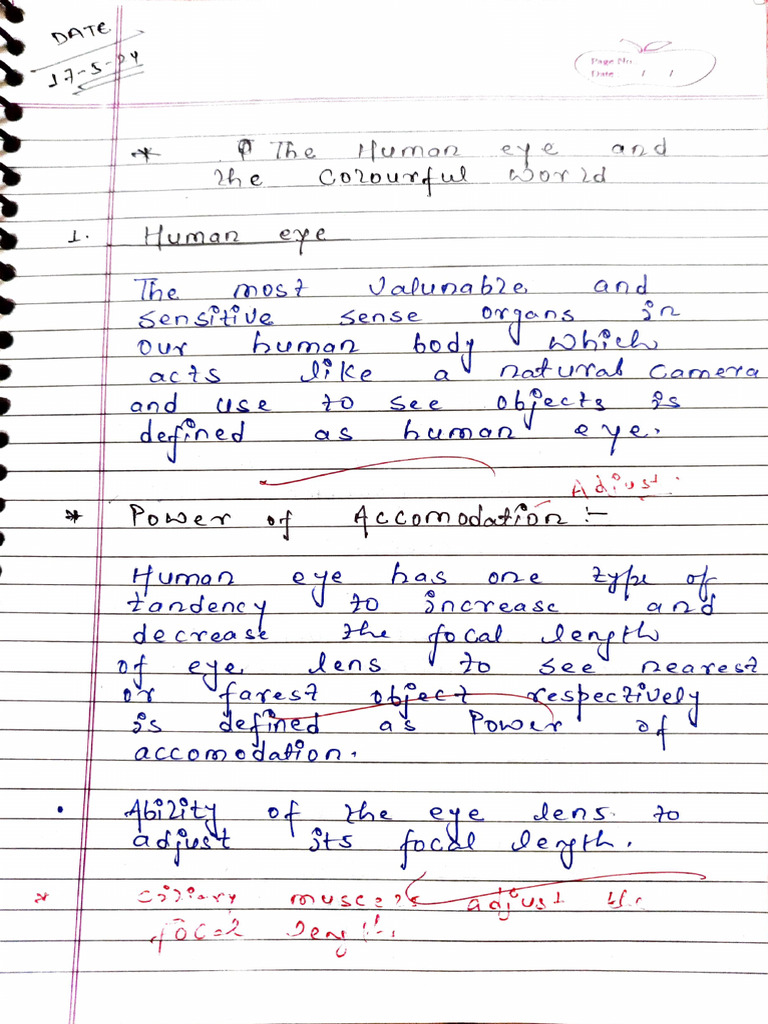 DATE
17-5-24
Page No.
Date / /
* The Human eye and
the Colourful world
1. Human eye
The most valunable and
sensitive sense organs in
our human body which
acts like a natural camera
and use to see objects is
defined as human eye.
Adjust.
* Power of Accomodation :-
Human eye has one type of
tandency to increase and
decrease the focal length
of eye lens to see nearest
or farest object respectively
is defined as Power of
accomodation.
• Ability of the eye lens to
adjust its focal length.
* ciliary muscels adjust the
focal length.